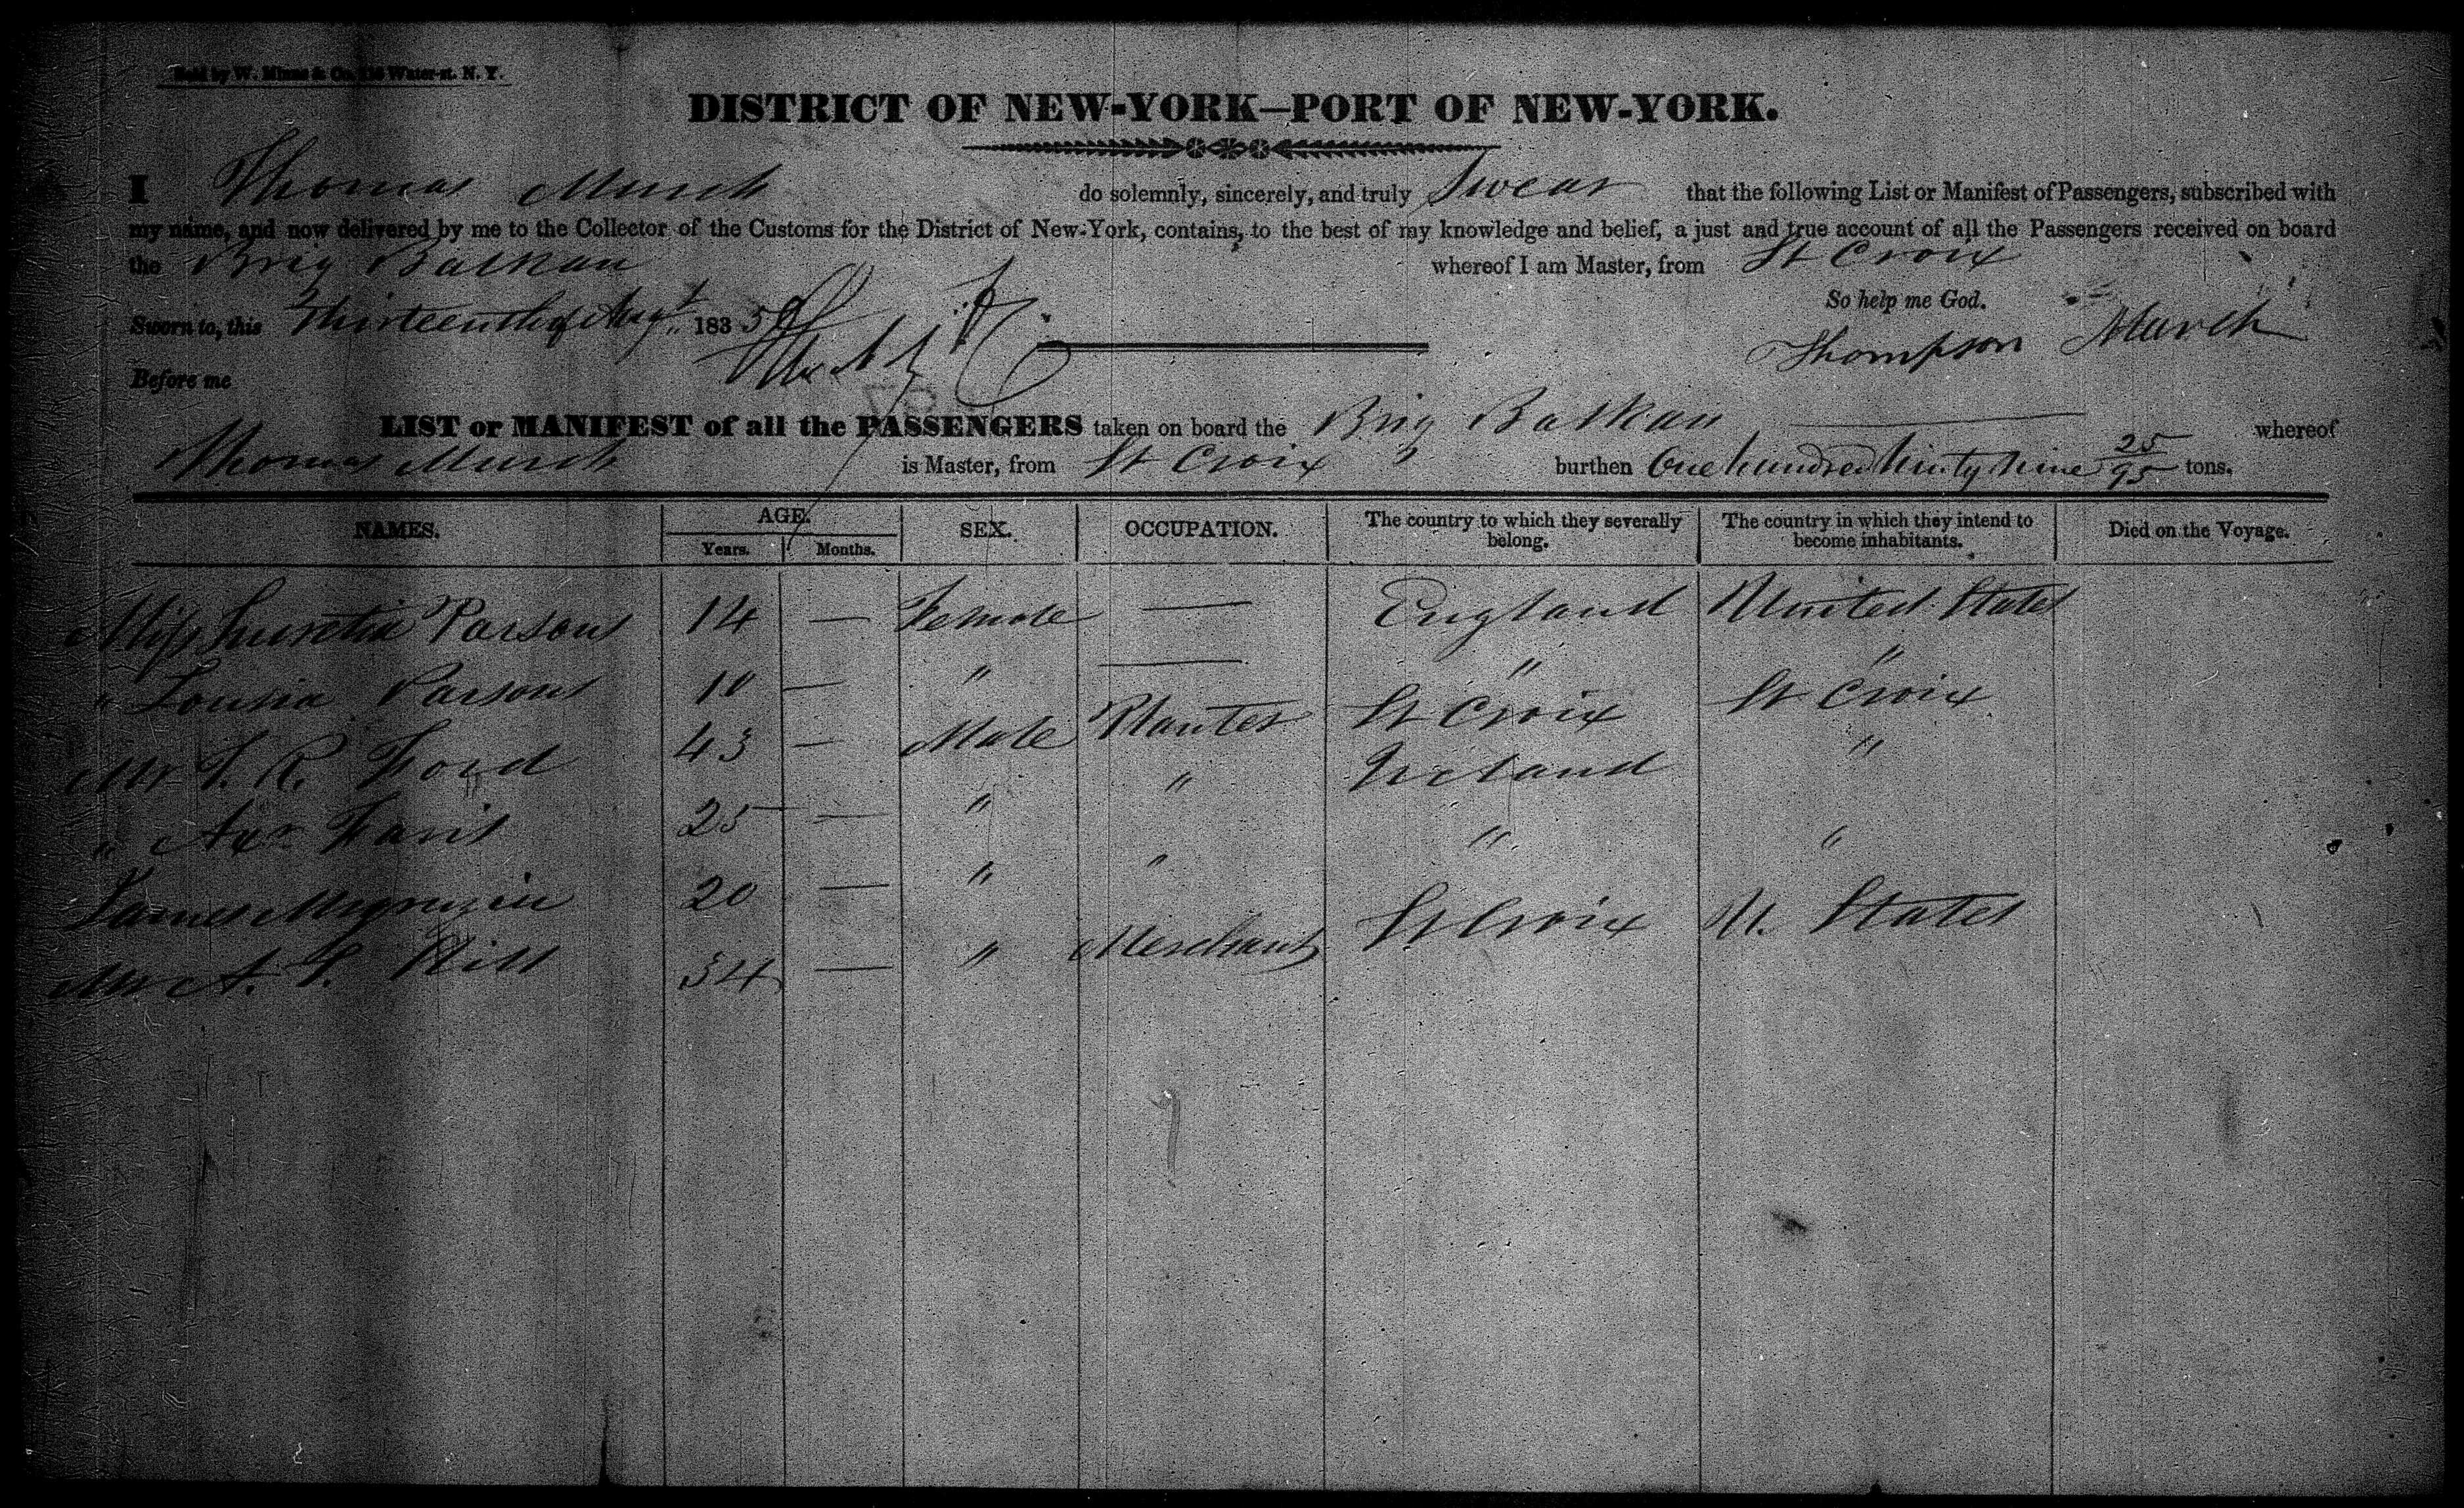 Sold by W. Minns & Co. Water-st. N. Y.
DISTRICT OF NEW-YORK—PORT OF NEW-YORK.
I Thomas Murch do solemnly, sincerely, and truly Swear that the following List or Manifest of Passengers, subscribed with
my name, and now delivered by me to the Collector of the Customs for the District of New-York, contains, to the best of my knowledge and belief, a just and true account of all the Passengers received on board
the Brig Balkan whereof I am Master, from St Croix
So help me God.
Sworn to, this Thirteenth of Augt 1835
Thompson Murch
Before me
LIST or MANIFEST of all the PASSENGERS taken on board the Brig Balkan whereof
Thomas Murch is Master, from St Croix burthen One hundred Ninty Nine 25/95 tons.
NAMES. AGE. SEX. OCCUPATION. The country to which they severally belong. The country in which they intend to become inhabitants. Died on the Voyage.
Years. Months.
Miss Lucretia Parsons 14 — Female — England United States
" Louisa Parsons 10 — " — " "
Mr T. R. Ford 43 — Male Planter St Croix St Croix
" Axr Faris 25 — " " Ireland "
James 20 — " " " "
Mr A. P. Hill 34 — " Merchant St Croix U. States